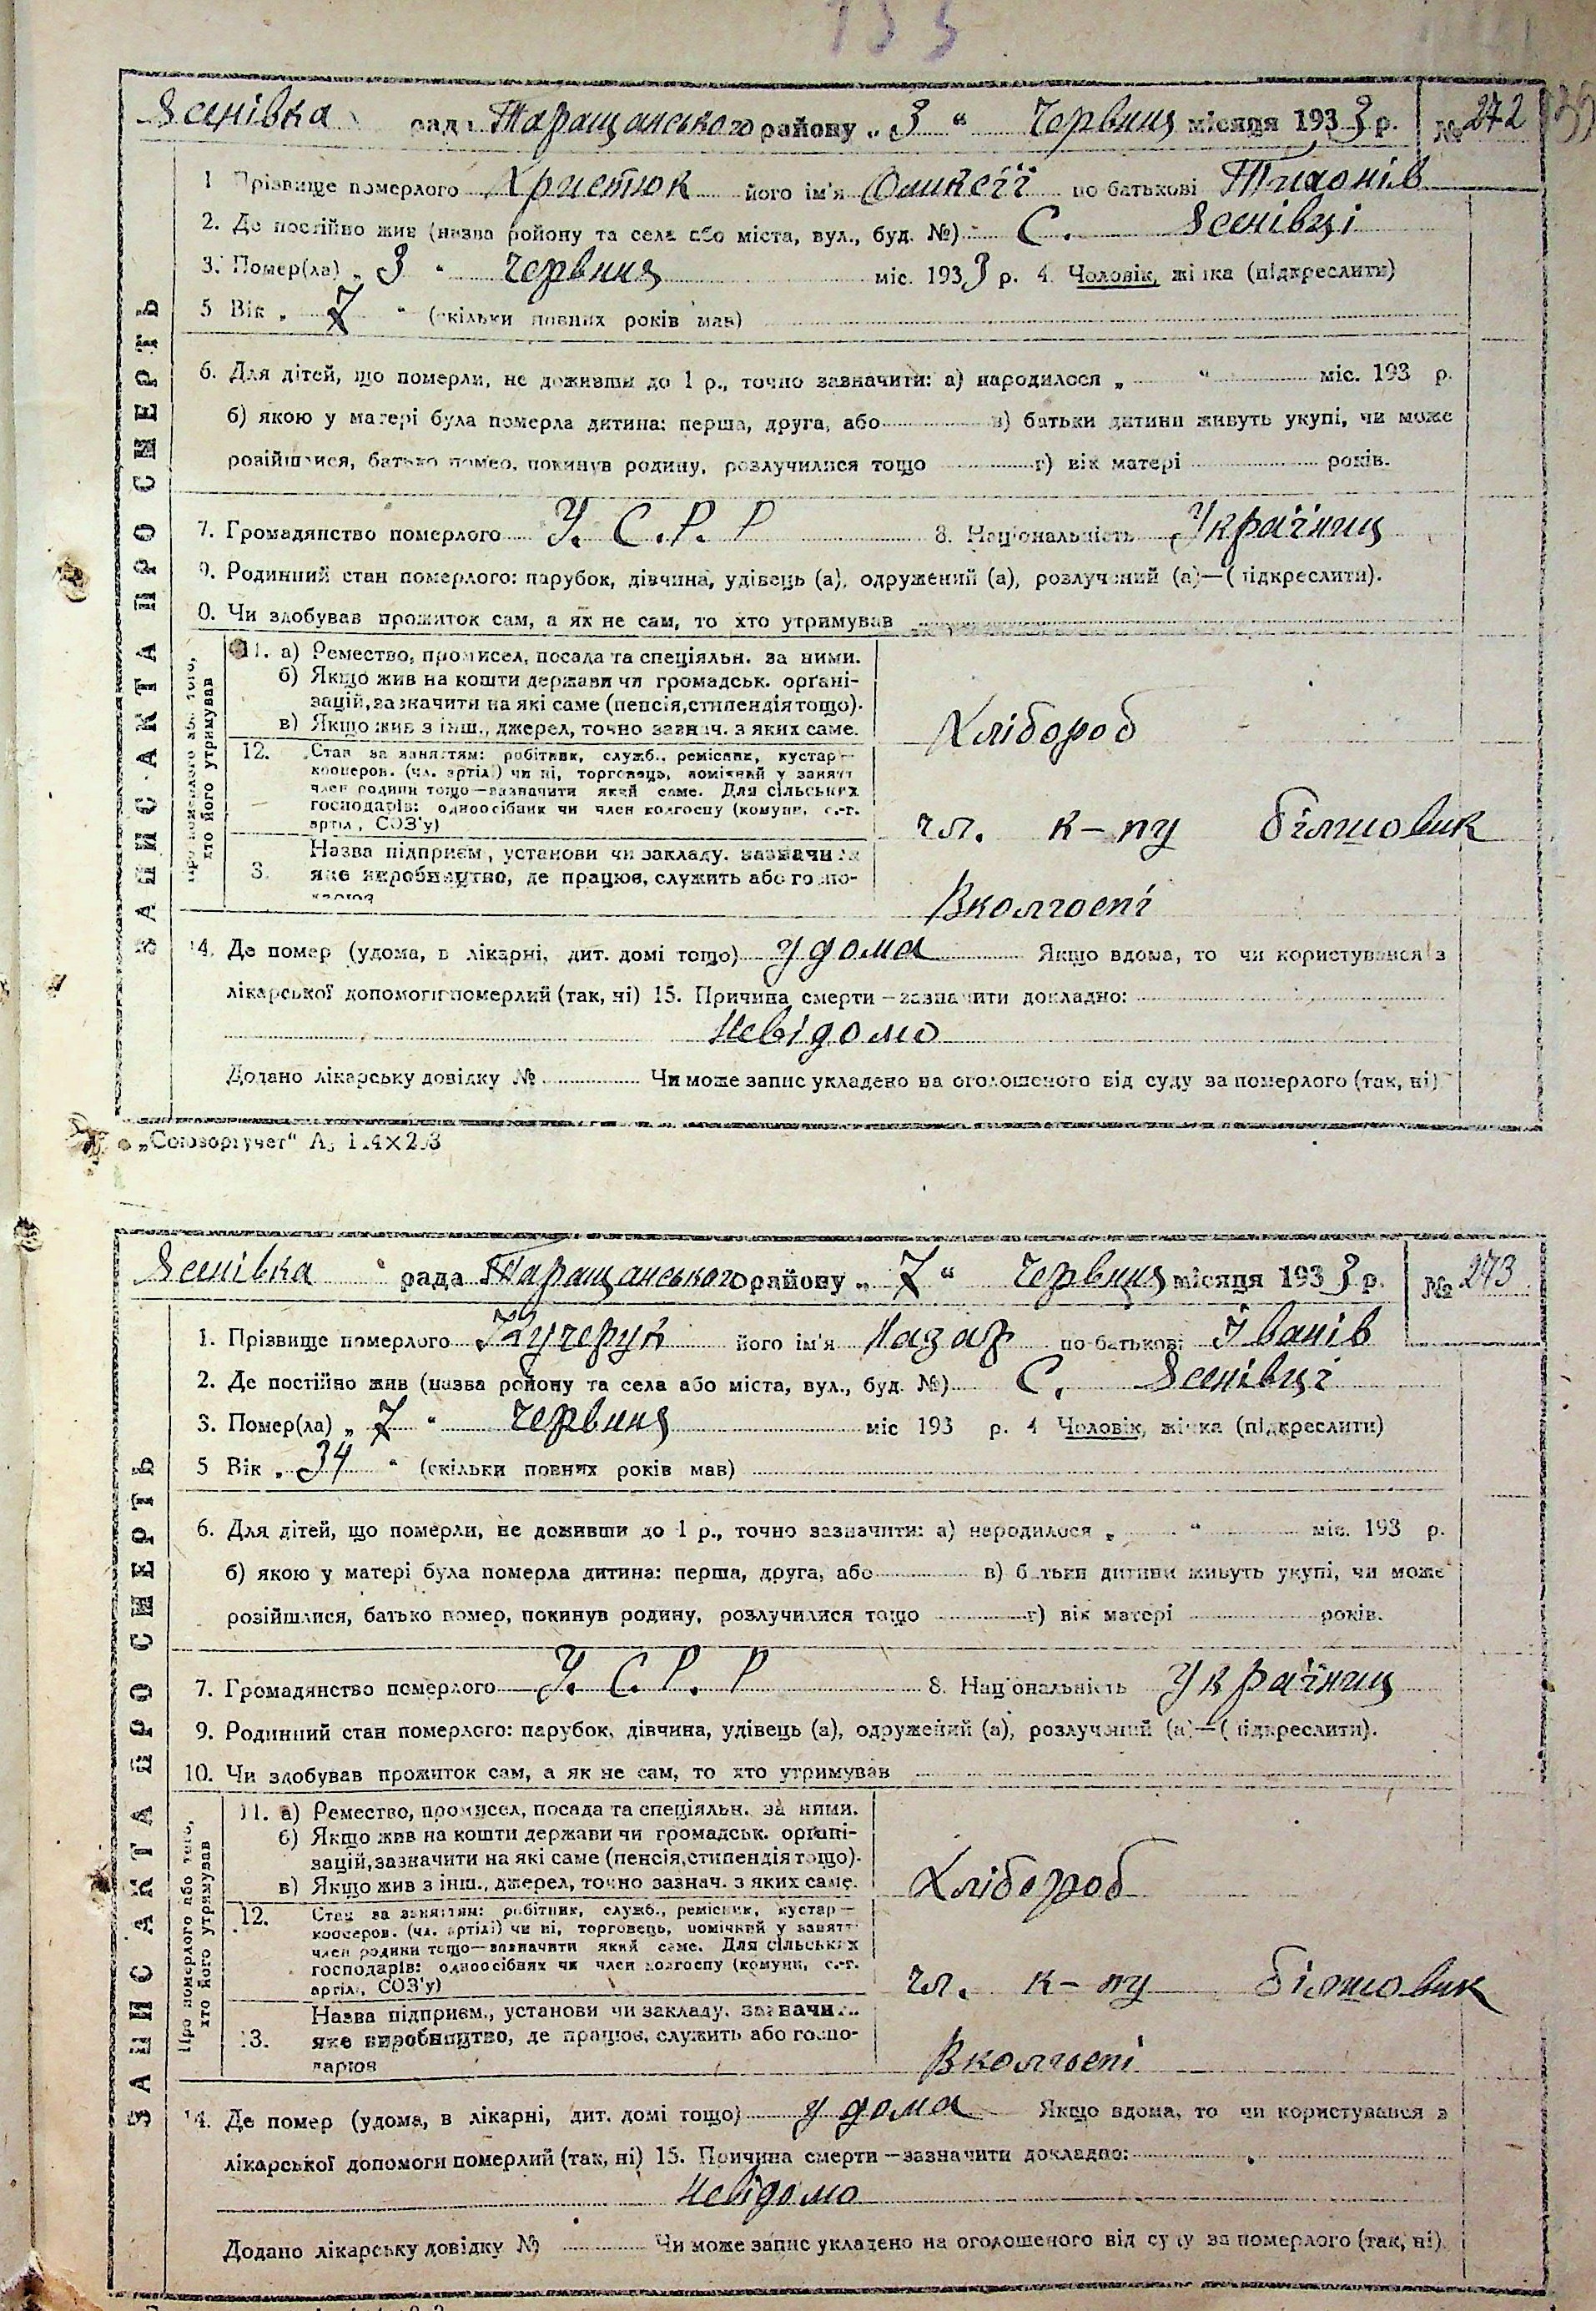 Ясенівка рада Таращанського району „ 3 “ Червня місяця 1933 р. № 272
1 Прізвище померлого Христюк його ім'я Оликсій по батькові Тихонів
2. Де постійно жив (назва ройону та села або міста, вул., буд. №) С. Ясенівці
3. Помер(ла) „ 3 “ Червня міс. 1933 р. 4. Чоловік, жінка (підкреслити)
5 Вік „ 7 “ (скільки повних років мав)
6. Для дітей, що померли, не доживши до 1 р., точно зазначити: а) народилося „ “ міс. 193 р.
б) якою у матері була померла дитина: перша, друга, або в) батьки дитини живуть укупі, чи може
розійшлися, батько помер, покинув родину, розлучилися тощо г) вік матері років.
7. Громадянство померлого У. С. Р. Р 8. Національність Українц
9. Родинний стан померлого: парубок, дівчина, удівець (а), одружений (а), розлучений (а)—(підкреслити).
0. Чи здобував прожиток сам, а як не сам, то хто утримував
ЗАПИС АКТА ПРО СМЕРТЬ
Про померлого або того,
хто його утримував
11. а) Ремество, промисел, посада та спеціяльн. за ними.
б) Якщо жив на кошти держави чи громадськ. орґані-
зацій, зазначити на які саме (пенсія, стипендія тощо).
в) Якщо жив з інш., джерел, точно зазнач. з яких саме.
Хлібороб
12. Стан за заняттям: робітник, служб., ремісник, кустар—
кооперов. (чл. артілі) чи ні, торговець, помічний у занятт
член родини тощо—зазначити який саме. Для сільських
господарів: одноосібник чи член колгоспу (комуни, с.-г.
артіл., СОЗ'у)
чл. к-пу більшовик
Назва підприєм., установи чи закладу, зазначи
3. яке виробництво, де працює, служить або госпо-
Вколгоспі
14. Де помер (удома, в лікарні, дит. домі тощо) у дома Якщо вдома, то чи користувався з
лікарської допомоги померлий (так, ні) 15. Причина смерти—зазначити докладно:
Невідомо
Додано лікарську довідку № Чи може запис укладено на оголошеного від суду за померлого (так, ні)
„Союзоргучет“
Ясенівка рада Таращанського району „ 7 “ Червня місяця 1933 р. № 273
1. Прізвище померлого Кучерук його ім'я Назар по-батькові Іванів
2. Де постійно жив (назва ройону та села або міста, вул., буд. №) С. Ясенівці
3. Помер(ла) „ 7 “ Червня міс 193 р. 4 Чоловік, жінка (підкреслити)
5 Вік „ 34 “ (скільки повних років мав)
6. Для дітей, що померли, не доживши до 1 р., точно зазначити: а) народилося „ “ міс. 193 р.
б) якою у матері була померла дитина: перша, друга, або в) батьки дитини живуть укупі, чи може
розійшлися, батько помер, покинув родину, розлучилися тощо г) вік матері років.
7. Громадянство померлого У. С. Р. Р 8. Національність Українц
9. Родинний стан померлого: парубок, дівчина, удівець (а), одружений (а), розлучений (а)—(підкреслити).
10. Чи здобував прожиток сам, а як не сам, то хто утримував
ЗАПИС АКТА ПРО СМЕРТЬ
Про померлого або того,
хто його утримував
11. а) Ремество, промисел, посада та спеціяльн. за ними.
б) Якщо жив на кошти держави чи громадськ. орґані-
зацій, зазначити на які саме (пенсія, стипендія тощо).
в) Якщо жив з інш., джерел, точно зазнач. з яких саме.
Хлібороб
12. Стан за заняттям: робітник, служб., ремісник, кустар—
кооперов. (чл. артілі) чи ні, торговець, помічний у занятт
член родини тощо—зазначити який саме. Для сільських
господарів: одноосібник чи член колгоспу (комуни, с.-г.
артіл., СОЗ'у)
чл. к-пу більшовик
Назва підприєм., установи чи закладу, зазначи
13. яке виробництво, де працює, служить або госпо-
дарює
Вколгоспі
14. Де помер (удома, в лікарні, дит. домі тощо) у дома Якщо вдома, то чи користувався з
лікарської допомоги померлий (так, ні) 15. Причина смерти—зазначити докладно:
Невідомо
Додано лікарську довідку № Чи може запис укладено на оголошеного від суду за померлого (так, ні)